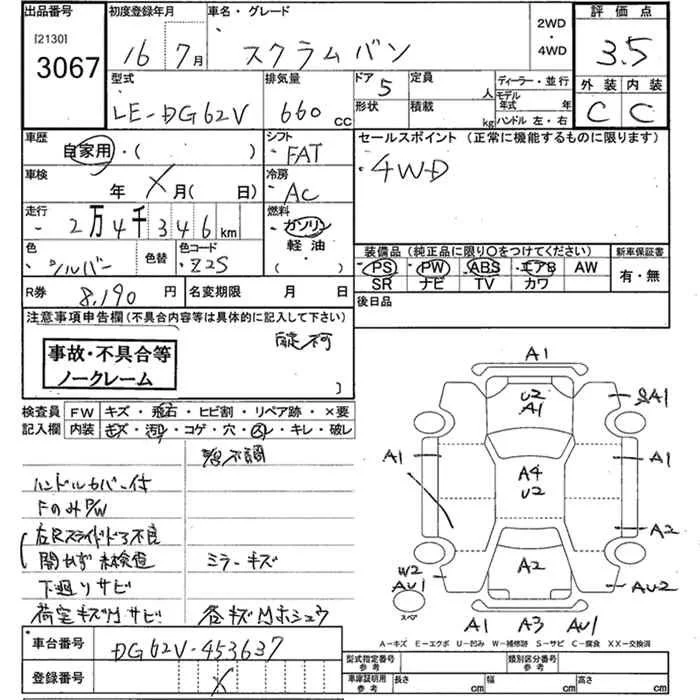 出品番号 初度登録年月 車名・グレード 2WD・4WD 評価点
[2130]
3067 16 7月 スクラムバン 3.5
型式 排気量 ドア 定員 人 ディーラー・並行 外装 内装
LE-DG62V 660 cc 5 形状 積載 kg モデル年式 年 ハンドル 左・右 C C
車歴 シフト セールスポイント (正常に機能するものに限ります)
自家用・( ) FAT ・4WD
車検 年 X月( 日) 冷房 AC
走行 2万4千346km 燃料 ガソリン 軽油 ( )
色 シルバー 色替 色コード Z2S
装備品 (純正品に限り○をつけてください) 新車保証書
・PS ・PW ・ABS ・エアB AW 有・無
SR ナビ TV カワ
R券 8,190円 名変期限 月 日 後日品
注意事項申告欄 (不具合内容等は具体的に記入して下さい)
事故・不具合等
ノークレーム
検査員 FW キズ・飛石・ヒビ割・リペア跡・×要
記入欄 内装 キズ・汚れ・コゲ・穴・スレ・キレ・破レ
ハンドルカバー付
FのみP/W
左Rスライドドア不良
開かず 未検査 ミラーキズ
下廻りサビ
荷室キズ凹サビ 各キズ凹ホシュウ
A1
U2
A1
A1
A1 A1
A4
U2
A2
W2
AU1 A2 AU2
スペア
A1 A3 AU1
A-キズ E-エクボ U-凹み W-補修跡 S-サビ C-腐食 XX-交換済
車台番号 DG62V-453637
登録番号 X
型式指定番号 参考 類別区分番号 参考
車庫証明用 参考 長さ cm 幅 cm 高さ cm